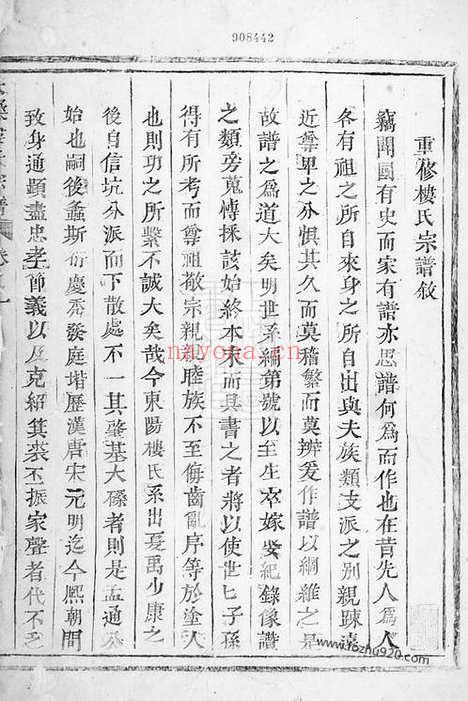 908442
重修樓氏宗譜敘
竊聞國有史而家有譜亦思譜何為而作也在昔先人為人
各有祖之所自來身之所自出與夫族類支派之別親踈遠
近尊卑之分惧其久而莫稽繁而莫辨爰作譜以綱維之是
故譜之為道大矣明世系綱第號以至生卒嫁娶紀錄像讚
之類旁蒐博採該始終本末而具書之者將以使世匕子孫
得有所考而尊祖敬宗親親睦族不至侮齒亂序等於塗人
也則功之所繫不誠大矣哉今東陽樓氏系出夏禹少康之
後自信坑分派而下散處不一其肇基大孫者則是孟通公
始也嗣後螽斯衍慶秀發庭堦歷漢唐宋元明迄今熙朝間
致身通顯盡忠孝節義以及克紹箕裘丕振家聲者代不乏
nayona.cn
www.fozhu920.com